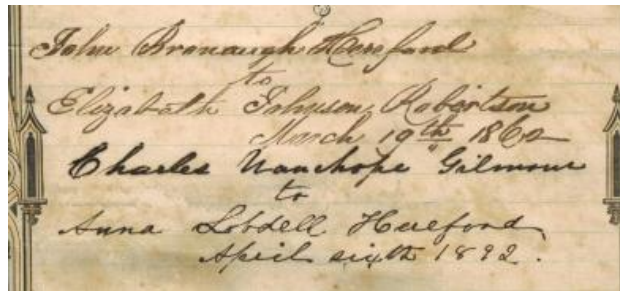 John Bronaugh Hereford
to
Elizabeth Johnson Robertson
March 19th 1862
Charles Wauchope Gilmour
to
Anna Lobdell Hereford
April sixth 1892.